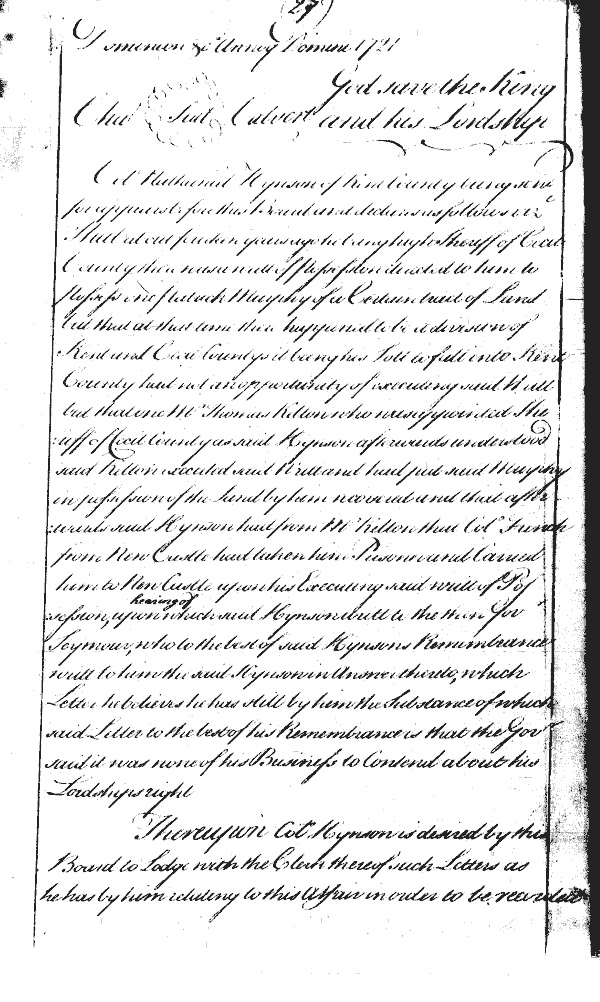 27
Dominion &c Annoq Domini 1721
God save the King
Cha: Seal Calvert and his Lordship
Col. Nathaniel Hynson of Kent County being sent
for appears before this Board and declares as follows vizt
That about fourteen years ago he being high Sheriff of Cecil
County there was a writt of Possession directed to him to
Possess one Murphy of a Certain tract of Land
but that at that time there happened to be a division of
Kent and Cecil Countys it being his Lott to fall into Kent
County had not an opportunity of executing said Writt
but that one Mr Thomas Kelton who was appointed She
:riff of Cecil County as said Hynson afterwards understood
said Kelton executed said Writt and had put said Murphy
in possession of the Land by him recovered and that after
:wards said Hynson had from Mr Kelton that Col. French
from New Castle had taken him Prisoner and Carried
him to New Castle upon his Executing said writt of Pos
:session, upon hearing of which said Hynson writt to the then Govr
Seymour, who to the best of said Hynsons Remembrance
writt to him the said Hynson in Answer thereto, which
Letter he believes he has still by him the Substance of which
said Letter to the best of his Remembrance is that the Govr
said it was none of his Business to Contend about his
Lordships right
Thereupon Col. Hynson is desired by this
Board to Lodge with the Clerk thereof such Letters as
he has by him relating to this Affair in order to be recorded